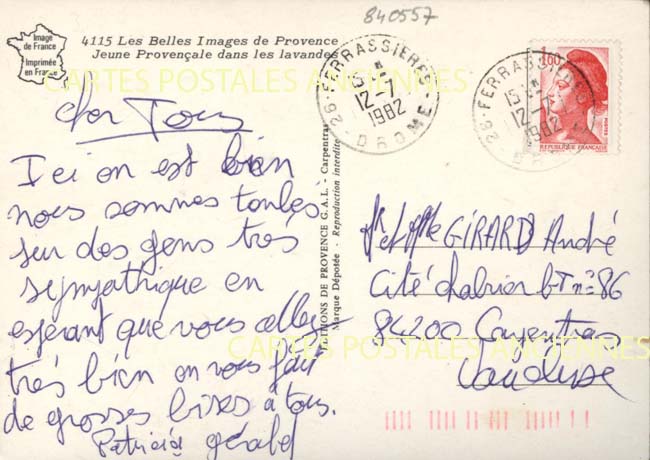 840557
Image
de France
Imprimée
en France
4115 Les Belles Images de Provence
Jeune Provençale dans les lavandes
CARTES POSTALES ANCIENNES
26 - FERRASSIERES
15 H
12-7
1982
DROME
26 - FERRASSIERES
15 H
12-7
1982
1,60
POSTES
REPUBLIQUE FRANÇAISE
EDITIONS DE PROVENCE G.A.L. - Carpentras
Marque Déposée - Reproduction interdite
Cher Tous
Ici on est bien
nous sommes tombés
sur des gens très
sympathique en
espérant que vous allez
très bien on vous fait
de grosses bises à tous.
Patricia gérald
Mr et Mme GIRARD André
Cité chabrier bT n° 86
84200 Carpentras
Vaucluse
CARTES POSTALES ANCIENNES